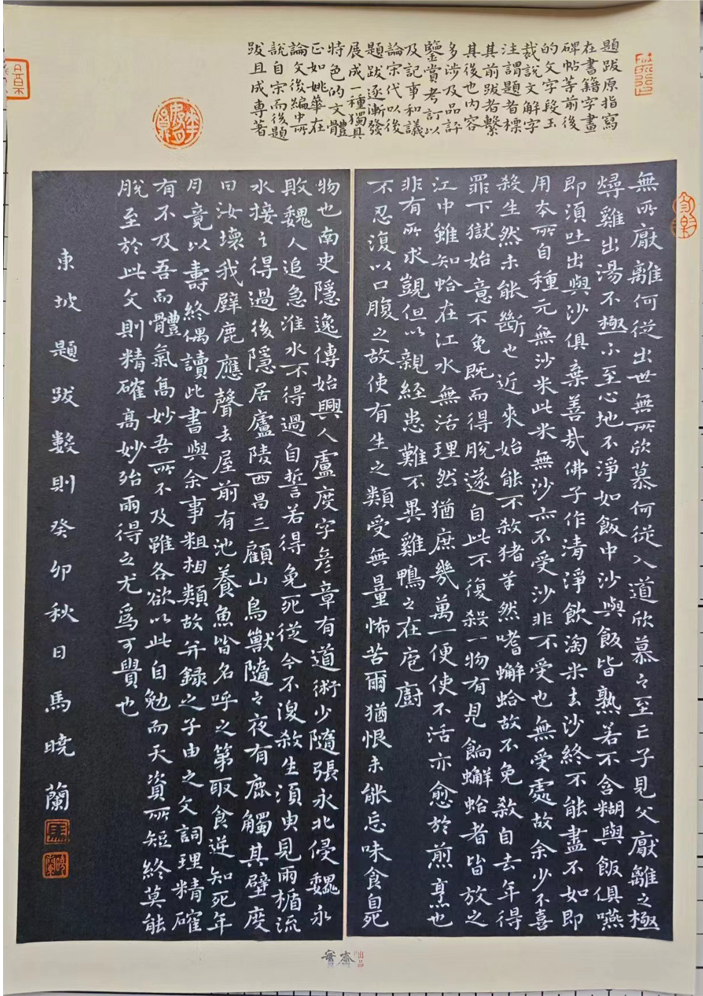 題跋原指寫
在書籍字畫
碑帖等前後
的文字段玉
裁說文解字
注謂題者標
其前跋者繫
其後也內容
多涉及品評
鑒賞考訂以
及記事和議
論宋代以後
題跋逐漸發
展成一種獨具
特色的文體
正如姚華在
論文後編中所
說自宗而後題
跋且成專著
無所厭離何從出世無所欣慕何從入道欣慕之至亡子見父厭離之極
燖雞出湯不極不至心地不淨如飯中沙與飯皆熟若不含糊與飯俱嚥
即須吐出與沙俱棄善哉佛子作清淨飲淘米去沙終不能盡不如即
用本所自種元無沙米此米無沙亦不受沙非不受也無受處故余少不喜
殺生然未能斷也近來始能不殺猪羊然嗜蠏蛤故不免殺自去年得
罪下獄始意不免既而得脫遂自此不復殺一物有見餉蠏蛤者皆放之
江中雖知蛤在江水無活理然猶庶幾萬一便使不活亦愈於煎烹也
非有所求覬但以親經患難不異雞鴨之在庖廚
不忍復以口腹之故使有生之類受無量怖苦爾猶恨未能忘味食自死
物也南史隱逸傳始興人盧度字彥章有道術少隨張永北侵魏永
敗魏人追急淮水不得過自誓若得免死從今不復殺生須臾見兩楯流
水接之得過後隱居廬陵西昌三顧山鳥獸隨之夜有鹿觸其壁度
曰汝壞我壁鹿應聲去屋前有池養魚皆名呼之第取食逆知死年
月竟以壽終偶讀此書與余事粗相類故并録之子由之文詞理精確
有不及吾而體氣高妙吾所不及雖各欲以此自勉而天資所短終莫能
脫至於此文則精確高妙殆兩得之尤為可貴也
東坡題跋數則癸卯秋日馬曉蘭
齋
出品